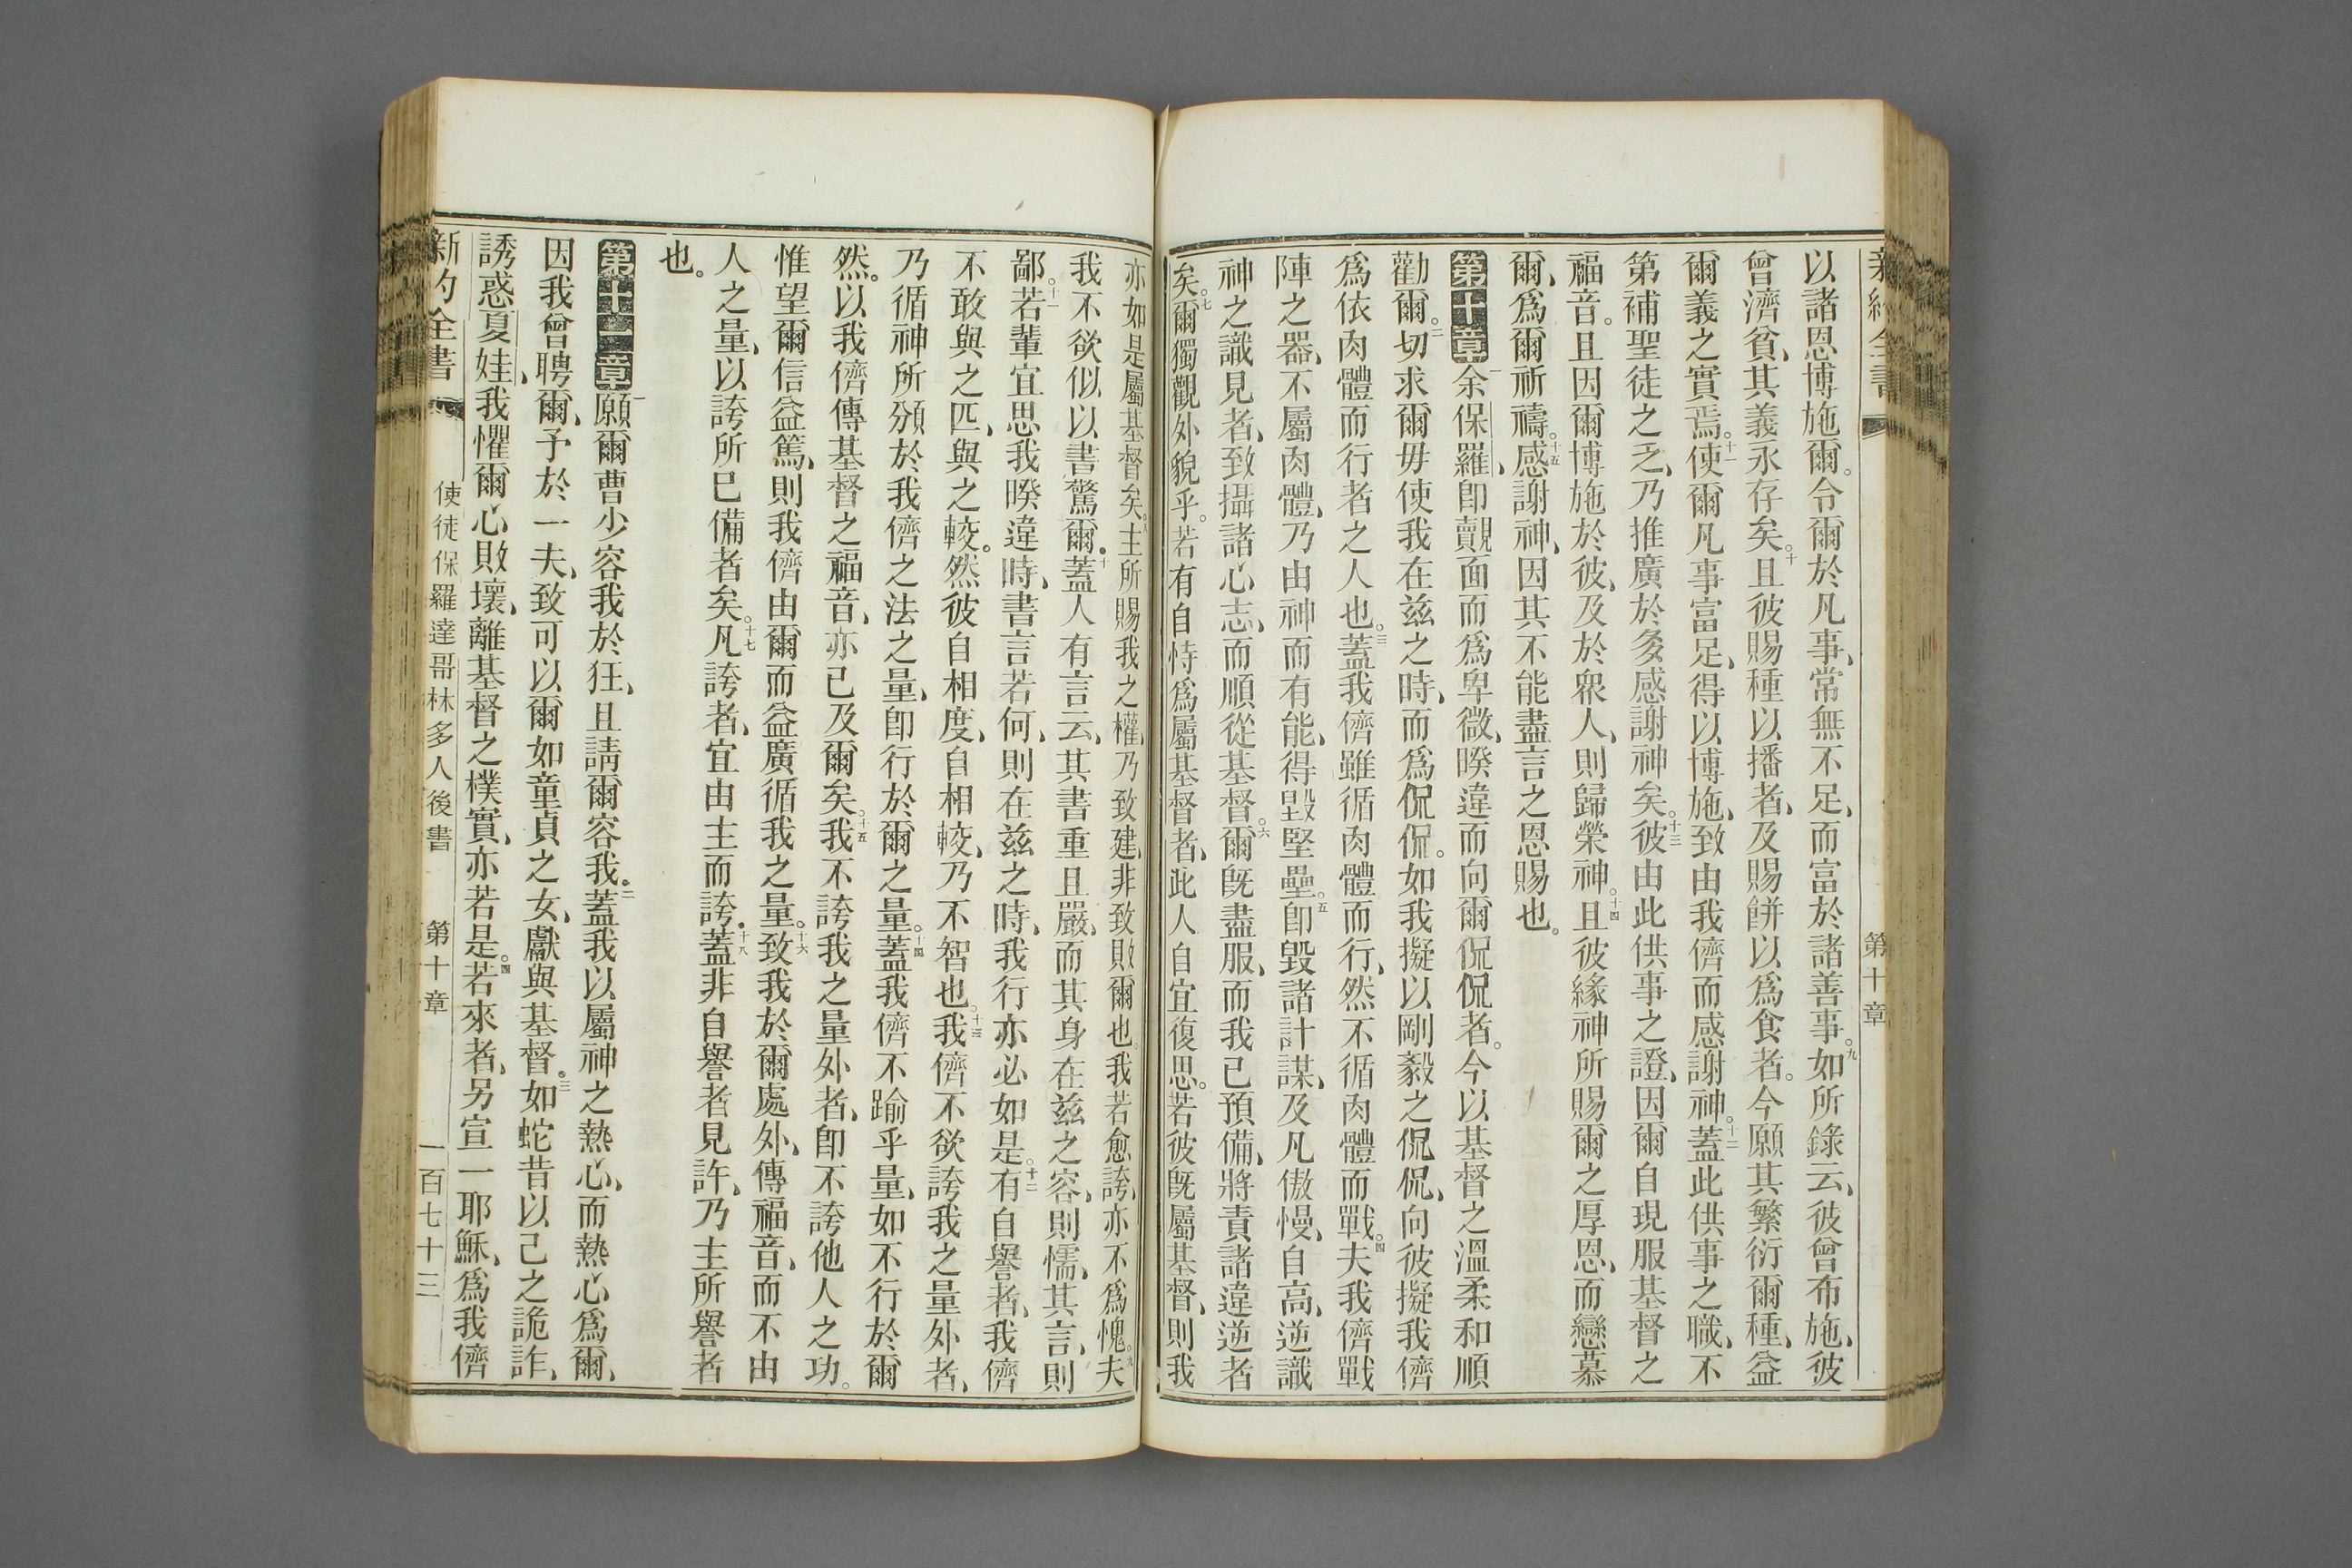 新約全書
第十章
以諸恩博施爾。令爾於凡事、常無不足、而富於諸善事。九如所錄云、彼曾布施、彼
曾濟貧、其義永存矣。十且彼賜種以播者、及賜餅以爲食者。今願其繁衍爾種、益
爾義之實焉。十一使爾凡事富足、得以博施、致由我儕而感謝神。十二蓋此供事之職、不
第補聖徒之乏、乃推廣於多感謝神矣。十三彼由此供事之證、因爾自現服基督之
福音。且因爾博施於彼、及於衆人、則歸榮神。十四且彼緣神所賜爾之厚恩、而戀慕
爾、爲爾祈禱。十五感謝神、因其不能盡言之恩賜也。
第十章一余保羅、卽覿面而爲卑微、暌違而向爾侃侃者。今以基督之溫柔和順
勸爾。二切求爾毋使我在茲之時、而爲侃侃。如我擬以剛毅之侃侃、向彼擬我儕
爲依肉體而行者之人也。三蓋我儕雖循肉體而行、然不循肉體而戰。四夫我儕戰
陣之器、不屬肉體、乃由神而有能、得毀堅壘。五卽毀諸計謀、及凡傲慢、自高、逆識
神之識見者、致攝諸心志、而順從基督。六爾旣盡服、而我已預備、將責諸違逆者
矣。七爾獨觀外貌乎。若有自恃爲屬基督者、此人自宜復思。若彼旣屬基督、則我
亦如是屬基督矣。八主所賜我之權、乃致建、非致敗爾也。我若愈誇、亦不爲愧。九夫
我不欲似以書驚爾。十蓋人有言云、其書重且嚴、而其身在茲之容、則懦、其言、則
鄙。十一若輩宜思我暌違時、書言若何、則在茲之時、我行亦必如是。十二有自譽者、我儕
不敢與之匹、與之較。然彼自相度、自相較、乃不智也。十三我儕不欲誇我之量外者、
乃循神所頒於我儕之法之量、卽行於爾之量。十四蓋我儕不踰乎量、如不行於爾
然。以我儕傳基督之福音、亦已及爾矣。十五我不誇我之量外者、卽不誇他人之功。
惟望爾信益篤、則我儕由爾而益廣循我之量。十六致我於爾處外、傳福音、而不由
人之量、以誇所已備者矣。十七凡誇者、宜由主而誇。十八蓋非自譽者見許、乃主所譽者
也。
第十一章一願爾曹少容我於狂、且請爾容我。二蓋我以屬神之熱心、而熱心爲爾、
因我曾聘爾、予於一夫、致可以爾如童貞之女、獻與基督。三如蛇昔以己之詭詐、
誘惑夏娃、我懼爾心敗壞、離基督之樸實、亦若是。四若來者、另宣一耶穌、爲我儕
新約全書
使徒保羅達哥林多人後書
第十章
一百七十三